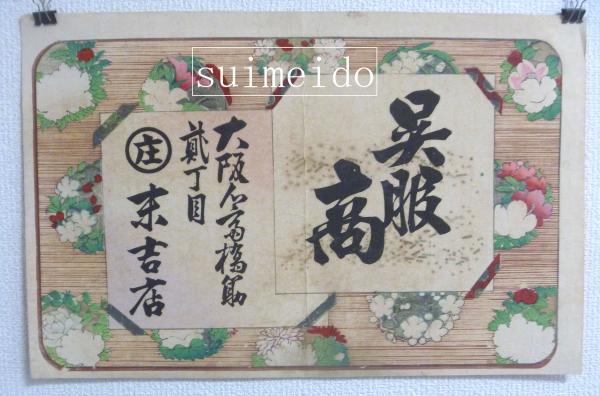 suimeido
呉服
商
大阪心斎橋筋
貳丁目
庄 末吉店